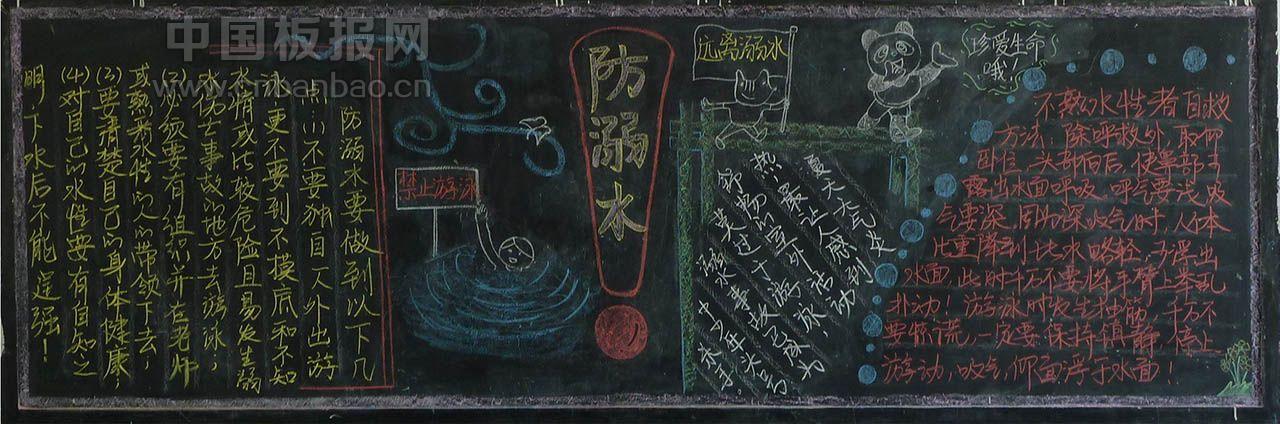 中国板报网
www.cnbanbao.cn
防溺水要做到以下几
点:(1)不要独自一人外出游
泳更不要到不摸底和不知
水情或比较危险且易发生溺
水伤亡事故的地方去游泳;
(2)必须要有组织并在老师
或熟悉水性的人的带领下去;
(3)要清楚自己的身体健康;
(4)对自己的水性要有自知之
明,下水后不能逞强!
禁止游泳
防溺水
远离溺水
珍爱生命
哦!
夏天天气炎
热最让人感到
的室外活动
莫过于游泳
溺水事故已成为
中小生头号
杀手
不熟水性者自救
方法:除呼救外,取仰
卧位,头部向后,使鼻部
露出水面呼吸。呼气要浅,吸
气要深。因为深吸气时,人体
比重降到比水略轻,可浮出
水面,此时千万不要将手臂上举乱
扑动!游泳时发生抽筋,千万不
要惊慌,一定要保持镇静,停止
游动,吸气,仰面浮于水面!